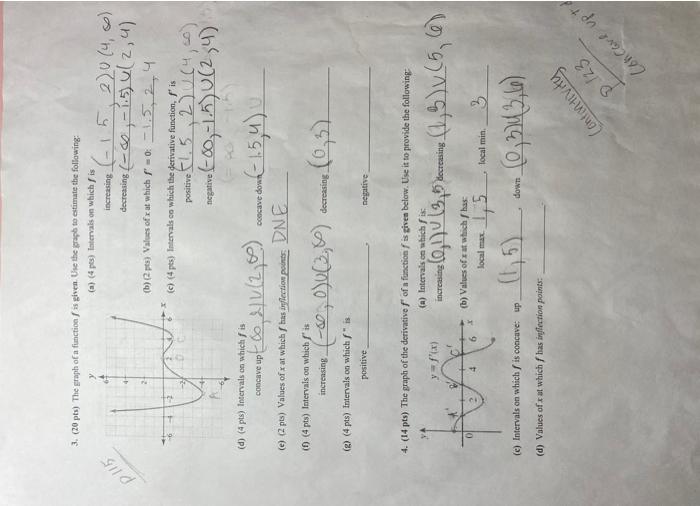 P115
3. (20 pts) The graph of a function f is given. Use the graph to estimate the following:
y
6
4
2
-6 -4 -2 2 4 6 x
-2
-4
-6
A
(a) (4 pts) Intervals on which f is
increasing (-1.5, 2)U(4,∞)
decreasing (-∞,-1.5)U(2,4)
(b) (2 pts) Values of x at which f' = 0: -1.5, 2, 4
(c) (4 pts) Intervals on which the derivative function, f' is
positive (-1.5, 2)U(4,∞)
negative (-∞,-1.5)U(2,4)
(d) (4 pts) Intervals on which f is
concave up (-∞,2)U(2,∞) concave down (-1.5,4)U
(e) (2 pts) Values of x at which f has inflection points: DNE
(f) (4 pts) Intervals on which f' is
increasing (-∞,0)U(3,∞) decreasing (0,3)
(g) (4 pts) Intervals on which f'' is
positive , negative
4. (14 pts) The graph of the derivative f' of a function f is given below. Use it to provide the following:
y
y = f'(x)
0 2 4 6 x
(a) Intervals on which f is:
increasing (0,1)U(3,5) decreasing (1,3)U(5,6)
(b) Values of x at which f has:
local max. 1,5, local min. 3
(c) Intervals on which f is concave: up (1,5), down (0,3)U(3,6)
(d) Values of x at which f has inflection points:
123
concave up